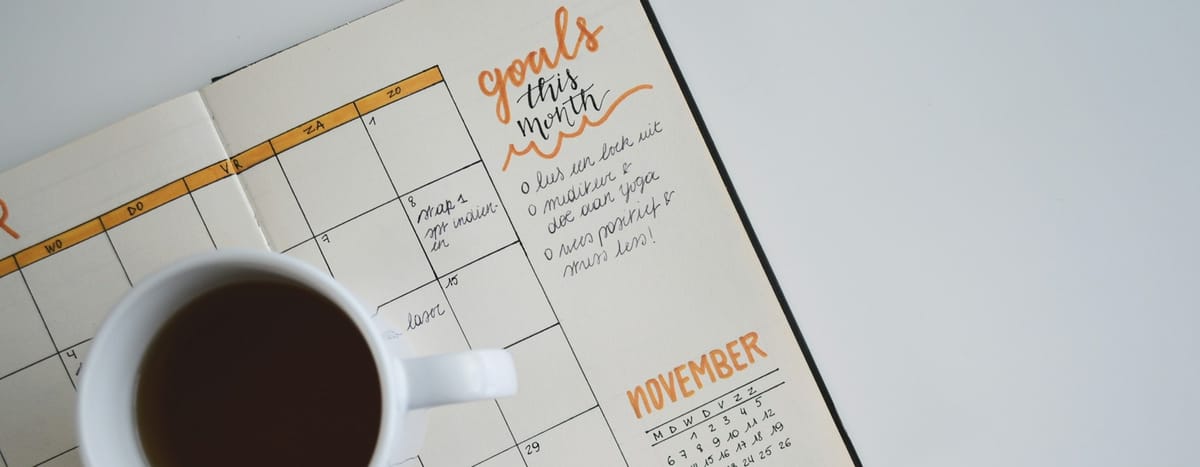 goals
this
month
o lees een boek uit
o mediteer &
doe aan yoga
o wees positief &
stress less!
WO DO VR ZA ZO
1
7
8
stap 1
spt indien-
en
4
15
laser
29
NOVEMBER
M D W D V Z Z
1 2 3 4 5
6 7 8 9 10 11 12
15 16 17 18 19
24 25 26